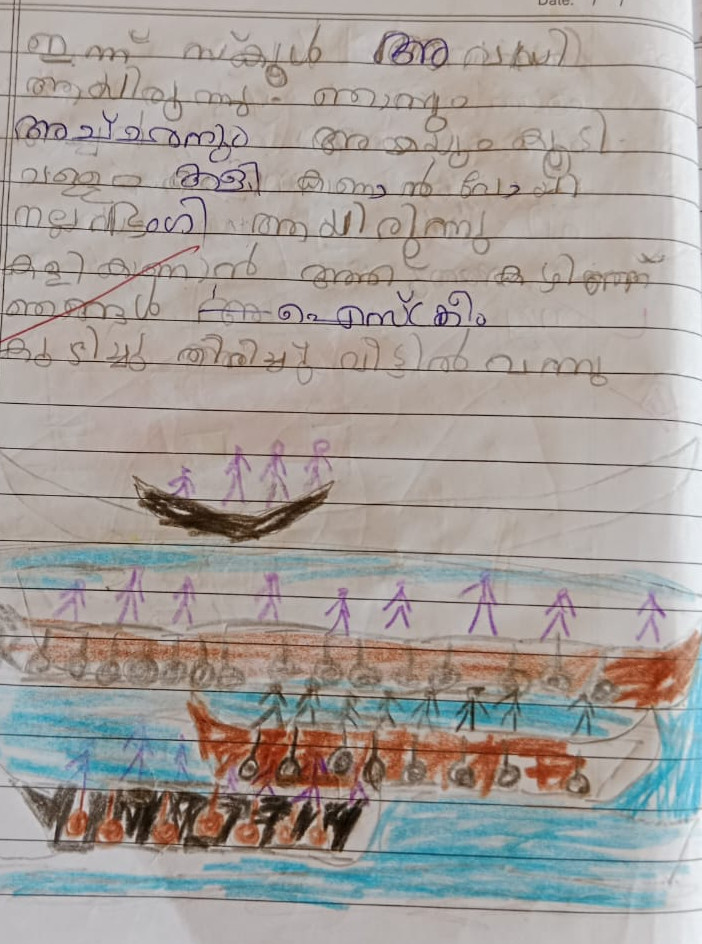 Date: / /
ഇന്ന് സ്കൂൾ അവധി
ആയിരുന്നു. ഞാനും
അച്ചനും അമ്മയും കൂടി
വള്ളം കളി കാണാൻ പോയി
നല്ല ഭംഗി ആയിരുന്നു
കളി കാണാൻ അത് കഴിഞ്ഞ്
ഞങ്ങൾ ഐസ്ക്രീം
കുടിച്ചു തിരിച്ചു വീട്ടിൽ വന്നു